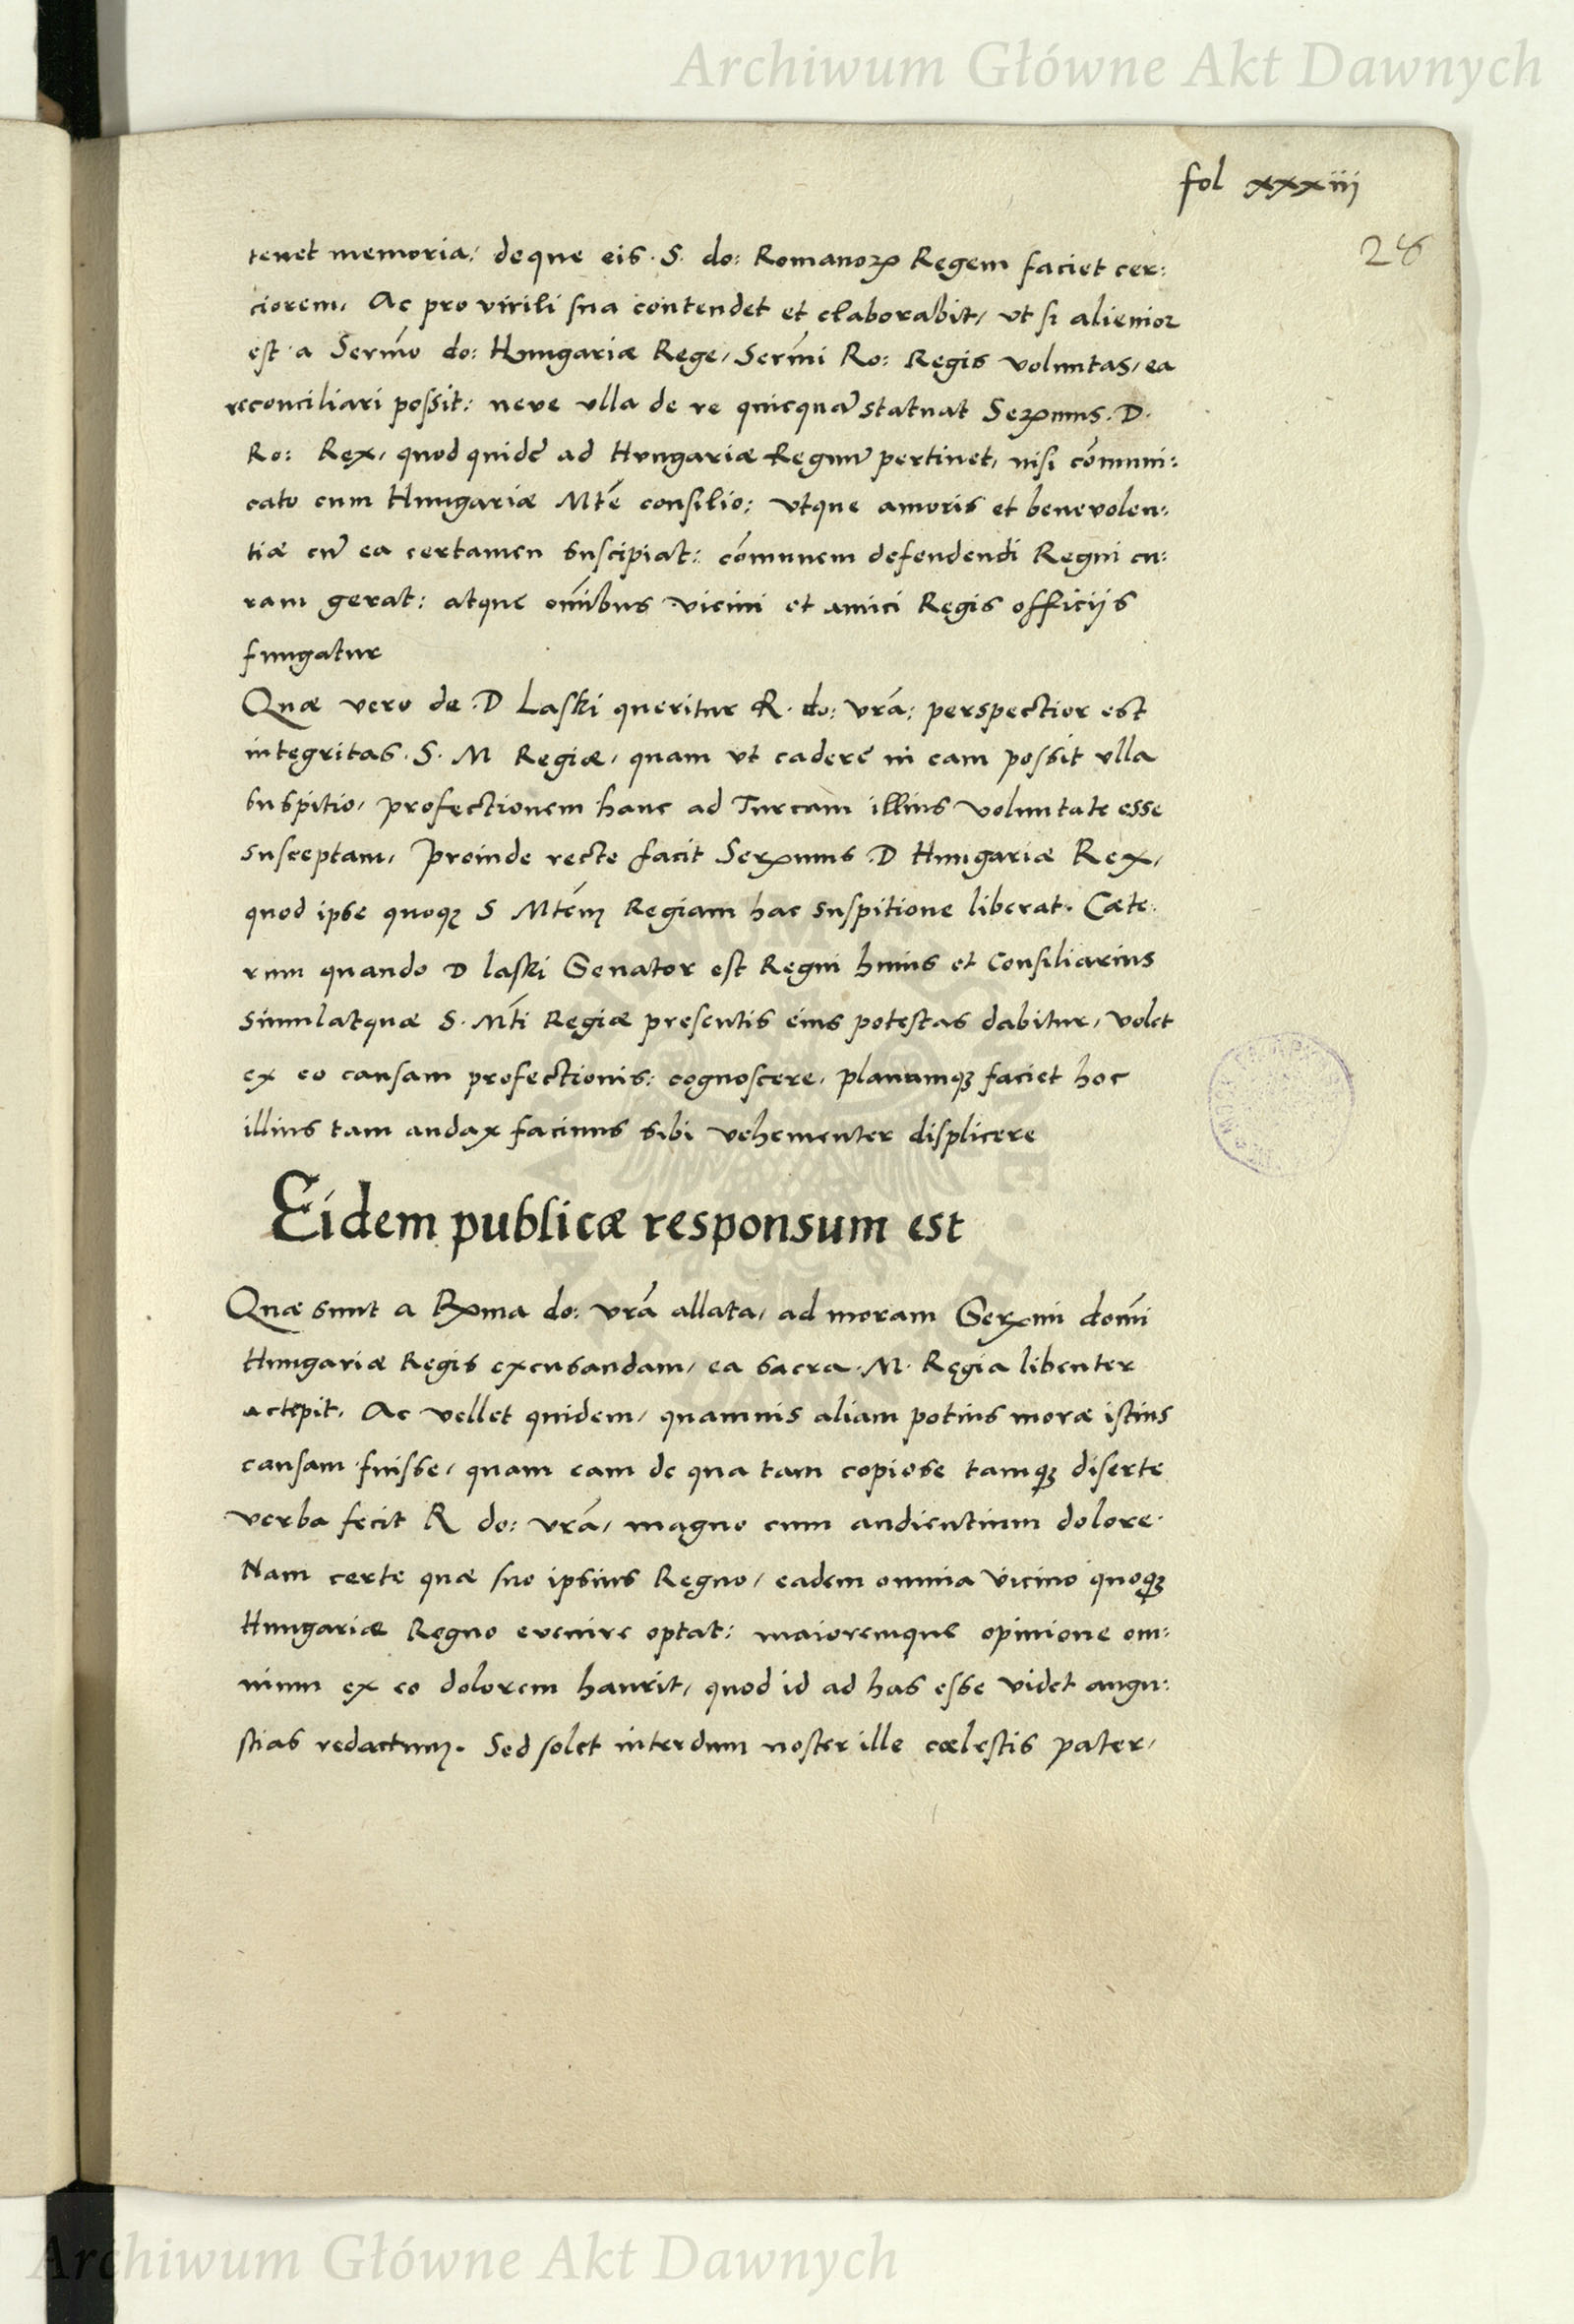 Archiwum Główne Akt Dawnych
fol xxxiij
28
tenet memoria, deque eis. S. do: Romanoꝝ Regem faciet cer:
ciorem, Ac pro virili sua contendet et elaborabit, vt si alienior
est a Sermo do: Hungariæ Rege, Sermi Ro: Regis voluntas, ea
reconciliari possit: neve vlla de re quicquā statuat Serxmus. D.
Ro: Rex, quod quidē ad Hungariæ Regnū pertinet, nisi cōmuni:
cato cum Hungariæ Mtē consilio: vtque amoris et benevolen:
tiæ cū ea certamen suscipiat: cōmunem defendendi Regni cu:
ram gerat: atque om̄ibus vicini et amici Regis officijs
fungatur
Quæ vero de D Laski queritur R. do: vrā: perspectior est
integritas. S. M Regiæ, quam vt cadere in eam possit vlla
suspitio, profectionem hanc ad Turcam illius voluntate esse
susceptam, Proinde recte facit Serxmus D Hungariæ Rex,
quod ipse quoqꝫ S Mtēm Regiam hac suspitione liberat. Cæte:
rum quando D laski Senator est Regni huius et Consiliarius
simulatquæ S. Mti Regiæ presentis eius potestas dabitur, volet
ex eo causam profectionis: cognoscere, planumqꝫ faciet hoc
illius tam audax facinus sibi vehementer displicere
Eidem publicæ responsum est
Quæ sunt a Rxma do: vrā allata, ad moram Serxmi domī
Hungariæ Regis excusandam, ea sacra. M. Regia libenter
accepit. Ac vellet quidem, quamuis aliam potius moræ istius
causam fuisse, quam eam de qua tam copiose tamqꝫ diserte
verba fecit R do: vrā, magno cum audientium dolore.
Nam certe quæ suo ipsius Regno, eadem omnia vicino quoqꝫ
Hungariæ Regno evenire optat: maioremque opinione om:
nium ex eo dolorem haurit, quod id ad has esse videt angu:
stias redactum. Sed solet interdum noster ille cælestis pater,
Archiwum Główne Akt Dawnych